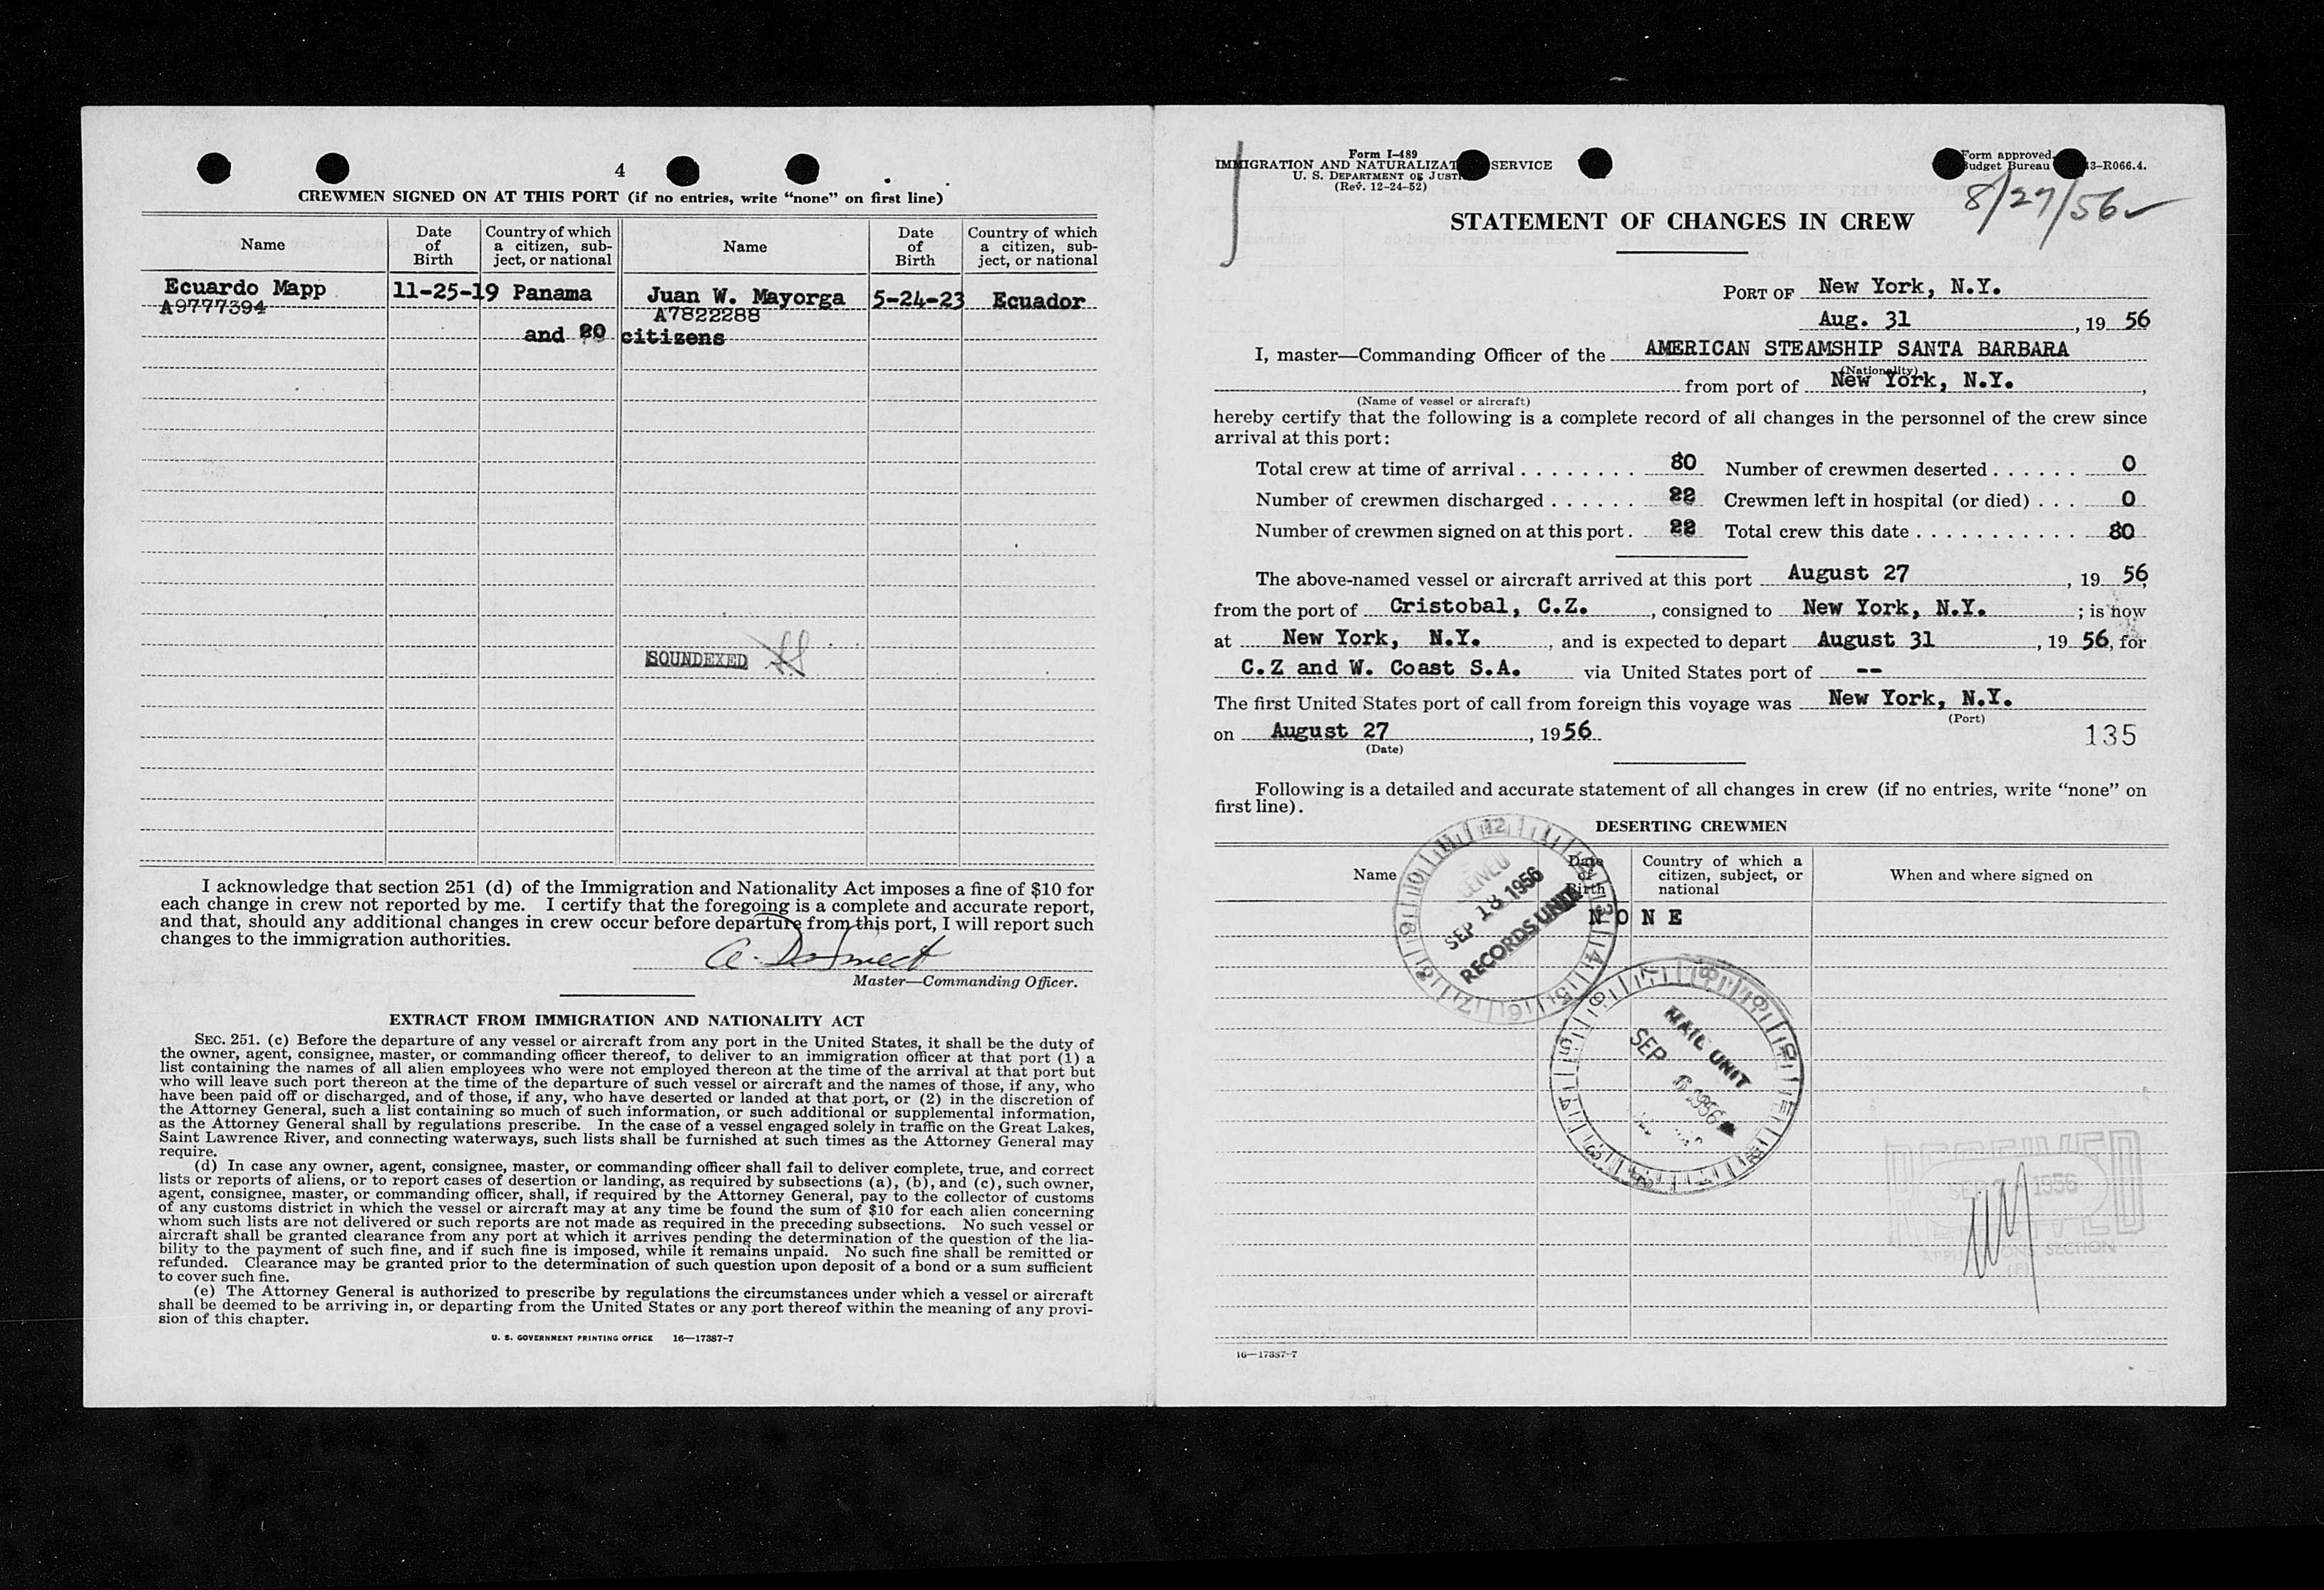 4
CREWMEN SIGNED ON AT THIS PORT (if no entries, write “none” on first line)
Name
Date of Birth
Country of which a citizen, subject, or national
Name
Date of Birth
Country of which a citizen, subject, or national
Ecuardo Mapp 11-25-19 Panama Juan W. Mayorga 5-24-23 Ecuador
A9777394 A7822288
and 20 citizens
SOUNDEXED
I acknowledge that section 251 (d) of the Immigration and Nationality Act imposes a fine of $10 for
each change in crew not reported by me. I certify that the foregoing is a complete and accurate report,
and that, should any additional changes in crew occur before departure from this port, I will report such
changes to the immigration authorities.
Master—Commanding Officer.
EXTRACT FROM IMMIGRATION AND NATIONALITY ACT
SEC. 251. (c) Before the departure of any vessel or aircraft from any port in the United States, it shall be the duty of
the owner, agent, consignee, master, or commanding officer thereof, to deliver to an immigration officer at that port (1) a
list containing the names of all alien employees who were not employed thereon at the time of the arrival at that port but
who will leave such port thereon at the time of the departure of such vessel or aircraft and the names of those, if any, who
have been paid off or discharged, and of those, if any, who have deserted or landed at that port, or (2) in the discretion of
the Attorney General, such a list containing so much of such information, or such additional or supplemental information,
as the Attorney General shall by regulations prescribe. In the case of a vessel engaged solely in traffic on the Great Lakes,
Saint Lawrence River, and connecting waterways, such lists shall be furnished at such times as the Attorney General may
require.
(d) In case any owner, agent, consignee, master, or commanding officer shall fail to deliver complete, true, and correct
lists or reports of aliens, or to report cases of desertion or landing, as required by subsections (a), (b), and (c), such owner,
agent, consignee, master, or commanding officer, shall, if required by the Attorney General, pay to the collector of customs
of any customs district in which the vessel or aircraft may at any time be found the sum of $10 for each alien concerning
whom such lists are not delivered or such reports are not made as required in the preceding subsections. No such vessel or
aircraft shall be granted clearance from any port at which it arrives pending the determination of the question of the lia-
bility to the payment of such fine, and if such fine is imposed, while it remains unpaid. No such fine shall be remitted or
refunded. Clearance may be granted prior to the determination of such question upon deposit of a bond or a sum sufficient
to cover such fine.
(e) The Attorney General is authorized to prescribe by regulations the circumstances under which a vessel or aircraft
shall be deemed to be arriving in, or departing from the United States or any port thereof within the meaning of any provi-
sion of this chapter.
U. S. GOVERNMENT PRINTING OFFICE 16—17387-7
Form I-489
IMMIGRATION AND NATURALIZAT SERVICE
U. S. DEPARTMENT OF JUST
(Rev. 12-24-52)
Form approved.
Budget Bureau 43-R066.4.
8/27/56
STATEMENT OF CHANGES IN CREW
PORT OF New York, N.Y.
Aug. 31, 19 56
I, master—Commanding Officer of the AMERICAN STEAMSHIP SANTA BARBARA
(Nationality)
from port of New York, N.Y.,
(Name of vessel or aircraft)
hereby certify that the following is a complete record of all changes in the personnel of the crew since
arrival at this port:
Total crew at time of arrival . . . . . . . . 80 Number of crewmen deserted . . . . . . 0
Number of crewmen discharged . . . . . . 22 Crewmen left in hospital (or died) . . . 0
Number of crewmen signed on at this port . 22 Total crew this date . . . . . . . . . . . 80
The above-named vessel or aircraft arrived at this port August 27, 19 56,
from the port of Cristobal, C.Z., consigned to New York, N.Y. ; is now
at New York, N.Y., and is expected to depart August 31, 19 56, for
C.Z and W. Coast S.A. via United States port of --
The first United States port of call from foreign this voyage was New York, N.Y.
(Port)
on August 27, 1956
(Date)
135
Following is a detailed and accurate statement of all changes in crew (if no entries, write “none” on
first line).
DESERTING CREWMEN
Name
Date of Birth
Country of which a citizen, subject, or national
When and where signed on
NONE
SEP 18 1956
RECORDS UNIT
MAIL UNIT
SEP 6 1956
RECEIVED
SEP 1956
APPLICATIONS SECTION
16—17387-7